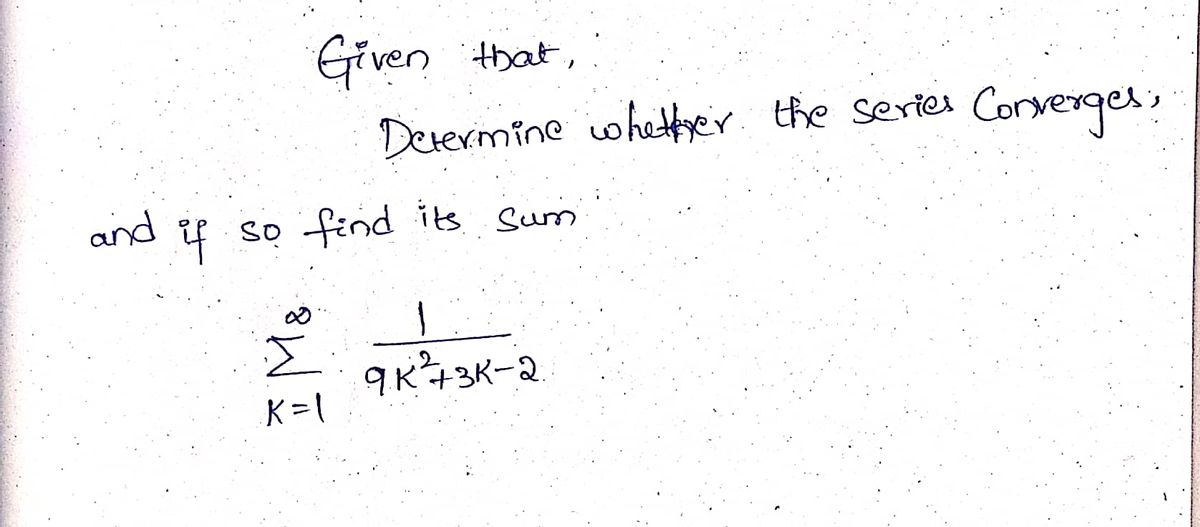 Given that,
Determine whether the series Converges,
and if so find its sum
∞ Σ K=1 1/(9K²+3K-2)